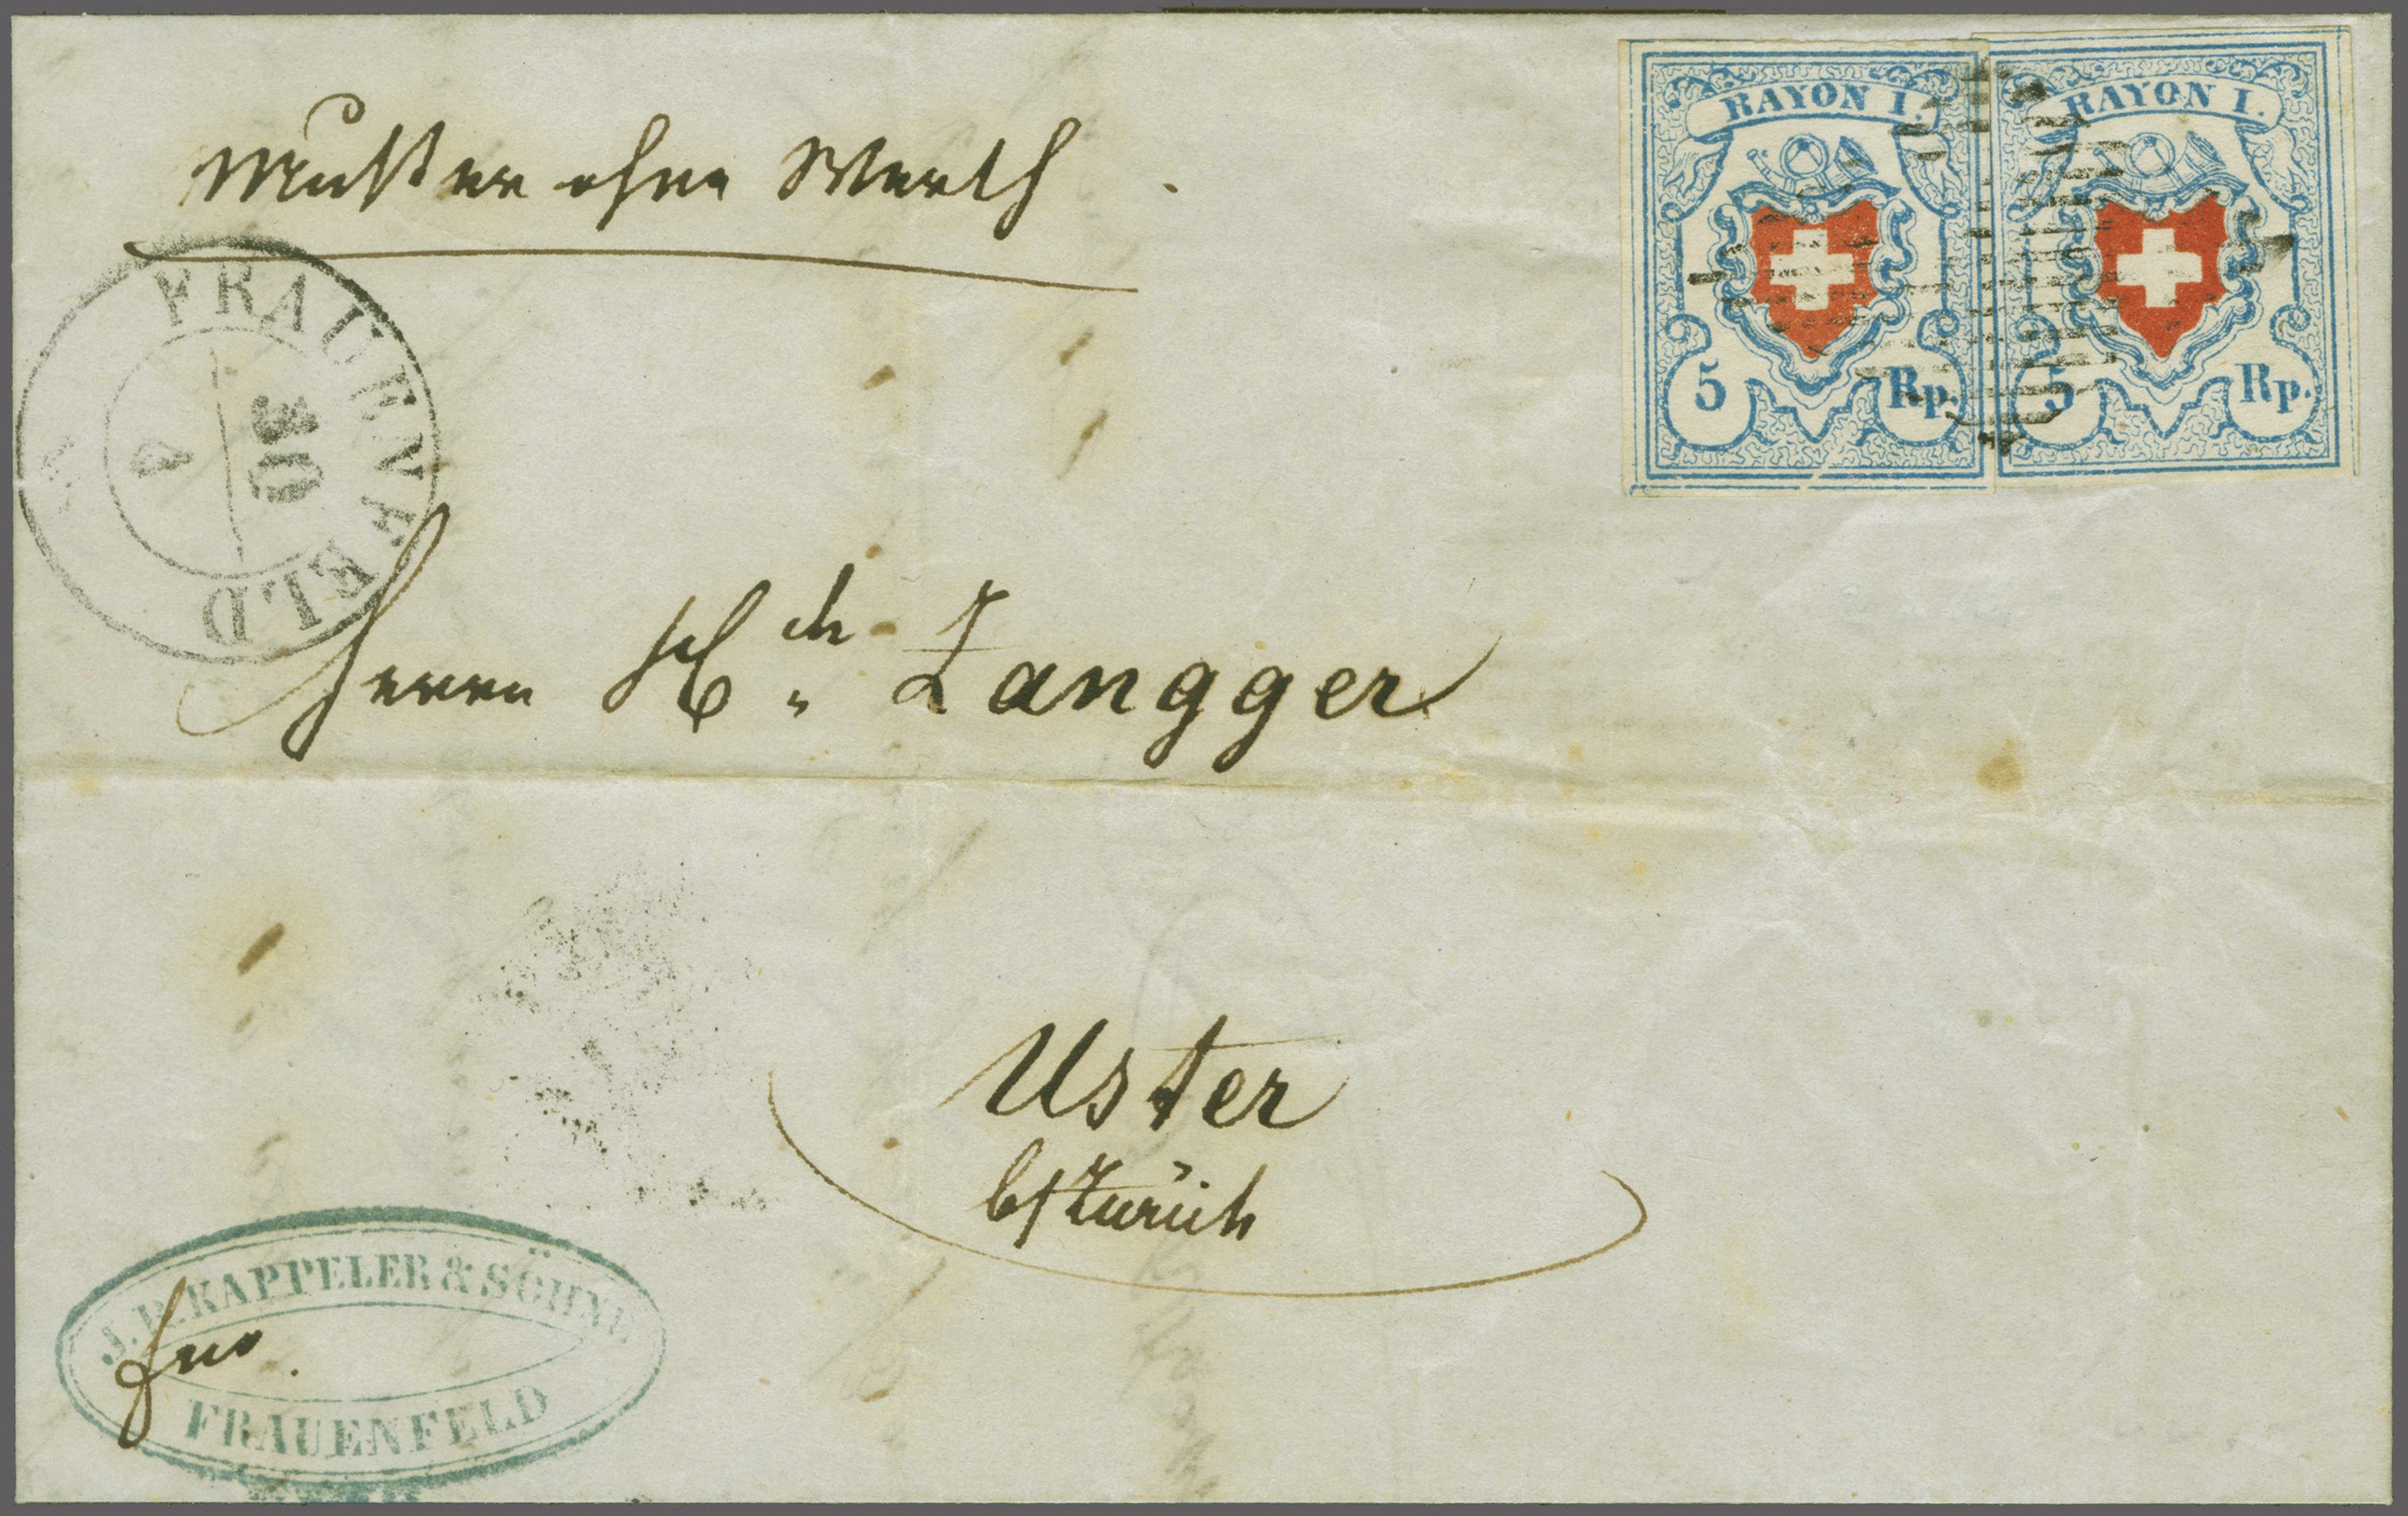 Muster ohne Werth
RAYON I.
5 Rp.
RAYON I.
5 Rp.
FRAUENFELD
30
4
Herrn Hch. Zangger
Uster
b/ Zürich
J. KAPPELER & SÖHNE
fro.
FRAUENFELD